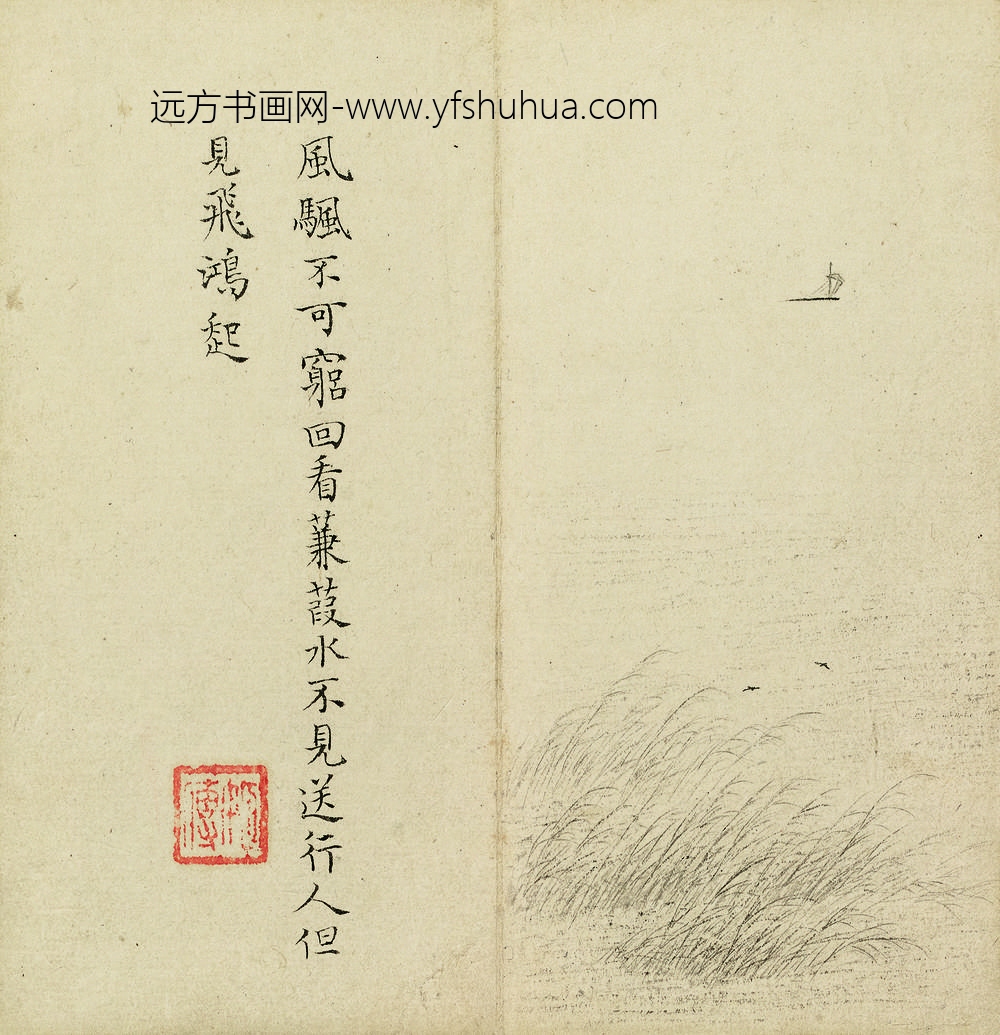 远方书画网-www.yfshuhua.com
風颿不可窮回看蒹葭水不見送行人但
見飛鴻起